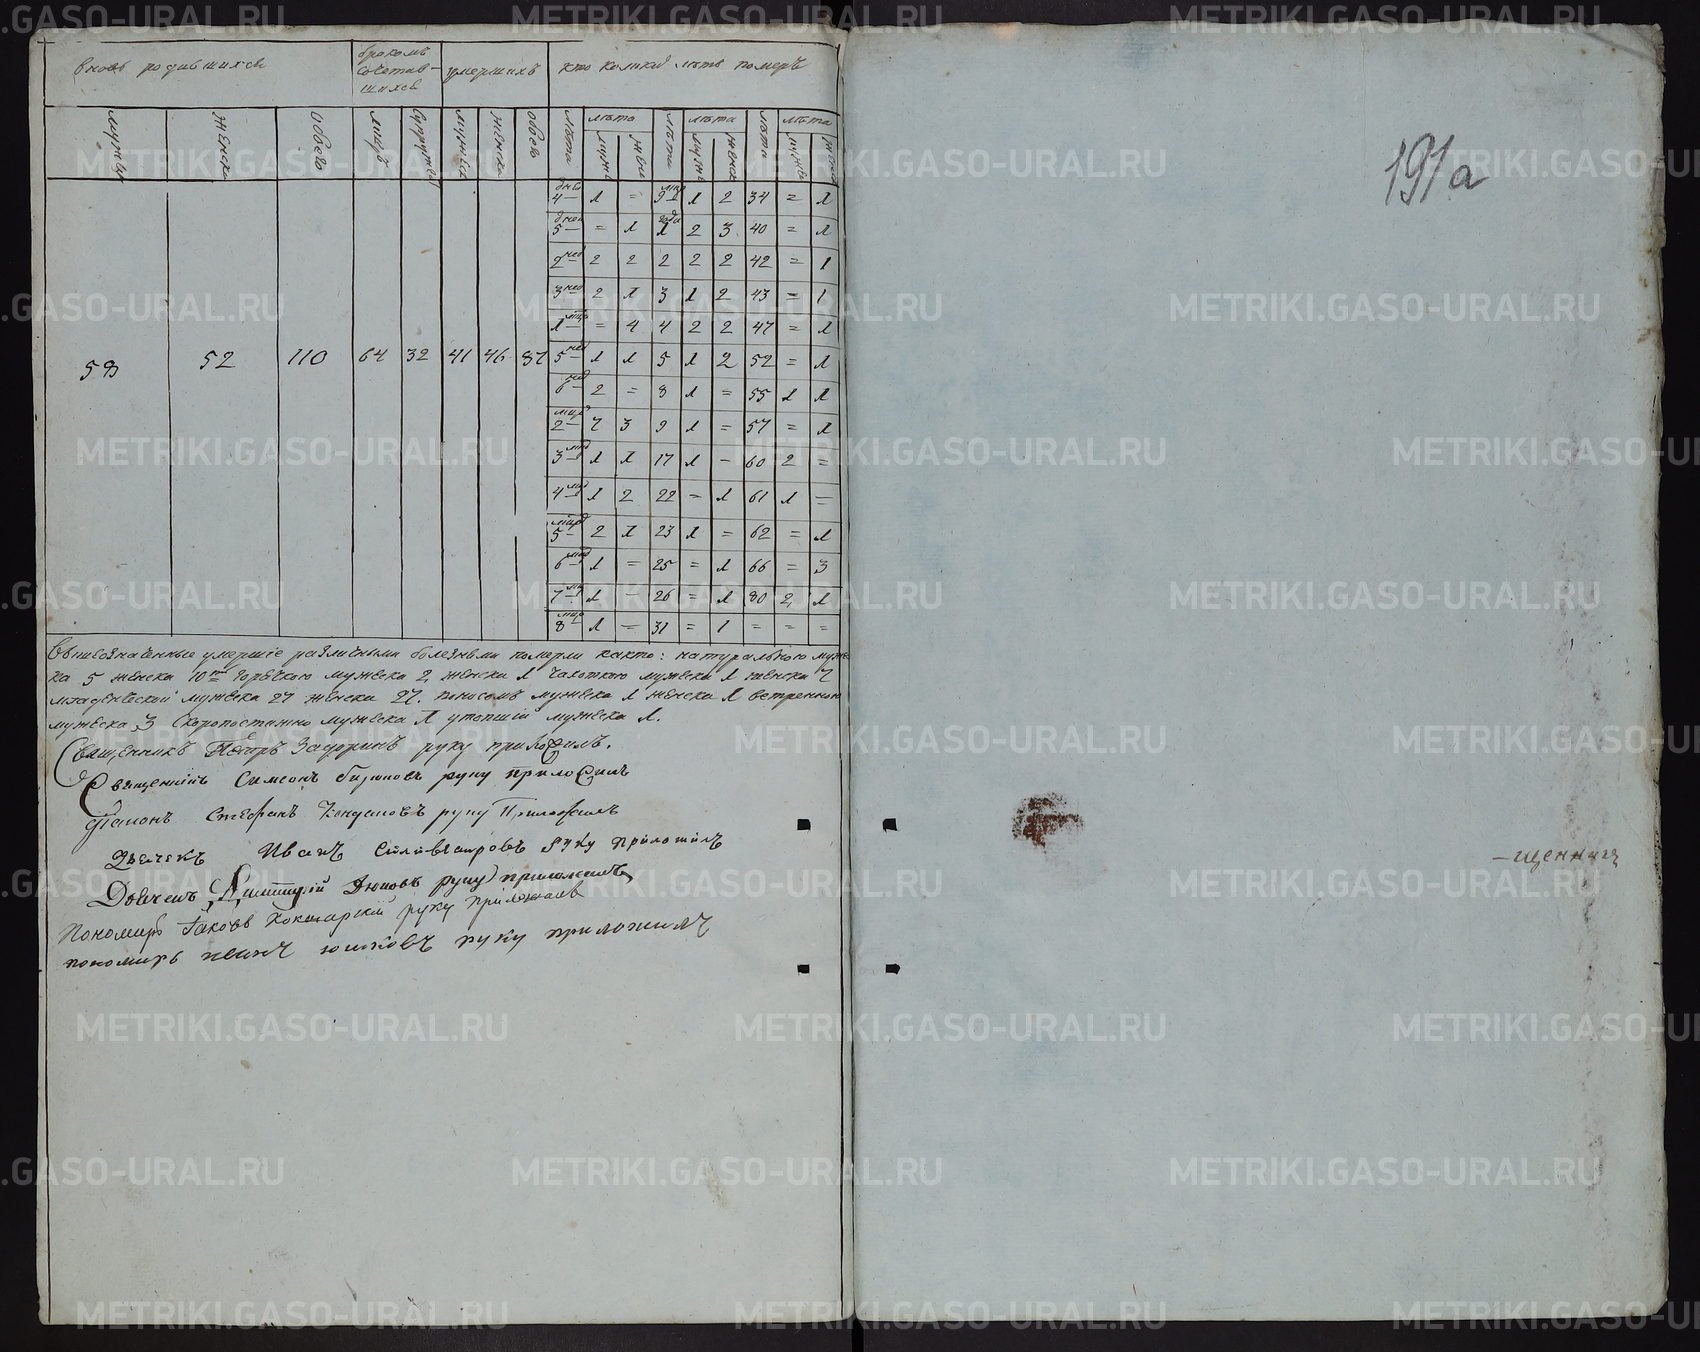 вновь родившихся
браком сочетавшихся
умершихъ
кто коликих летъ померъ
мужска
женска
обоег
лицъ
супружеј
мужска
женска
обоег
лета
лета
мужс
женс
лета
лета
мужс
женск
лета
лета
мужс
женск
58 52 110 64 32 41 46 87
4 дне 1 = 9 мцъ 1 2 34 = 1
5 дней = 1 1 года 2 3 40 = 1
2 нед 2 2 2 2 2 42 = 1
3 нед 2 1 3 1 2 43 = 1
1 мцъ = 4 4 2 2 47 = 1
5 нед 1 1 5 1 2 52 = 1
6 нед 2 = 8 1 = 55 1 1
2 мцъ 7 3 9 1 = 57 = 1
3 мцъ 1 1 17 1 = 60 2 =
4 мцъ 1 2 22 = 1 61 1 =
5 мцъ 2 1 23 1 = 62 = 1
6 мцъ 1 = 25 = 1 66 = 3
7 мцъ 1 = 26 = 1 80 2 1
8 мцъ 1 = 31 = 1 = = =
Вышеозначенные умершие различными болезньми померли както: натуральною мужес
ка 5 женска 10 горячкою мужеска 2 женска 1 чахоткою мужеска 1 женска 7
младенческой мужеска 27 женска 27. поносомъ мужеска 1 женска 1 ветренною
мужеска 3 скоропостижно мужеска 1 утопшій мужеска 1.
Священникъ Петръ Задоринъ руку приложилъ.
Священникъ Симеонъ Бирюковъ руку приложилъ
Діаконъ Стефанъ руку Приложилъ
Дьячекъ Иванъ Силивестровъ руку приложилъ
Дьячекъ Димитрій Дюковъ руку приложилъ
Пономарь Іаковъ Кокшарскій руку приложилъ
пономарь иванъ юшковъ руку приложилъ
191а
-щенникъ
METRIKI.GASO-URAL.RU